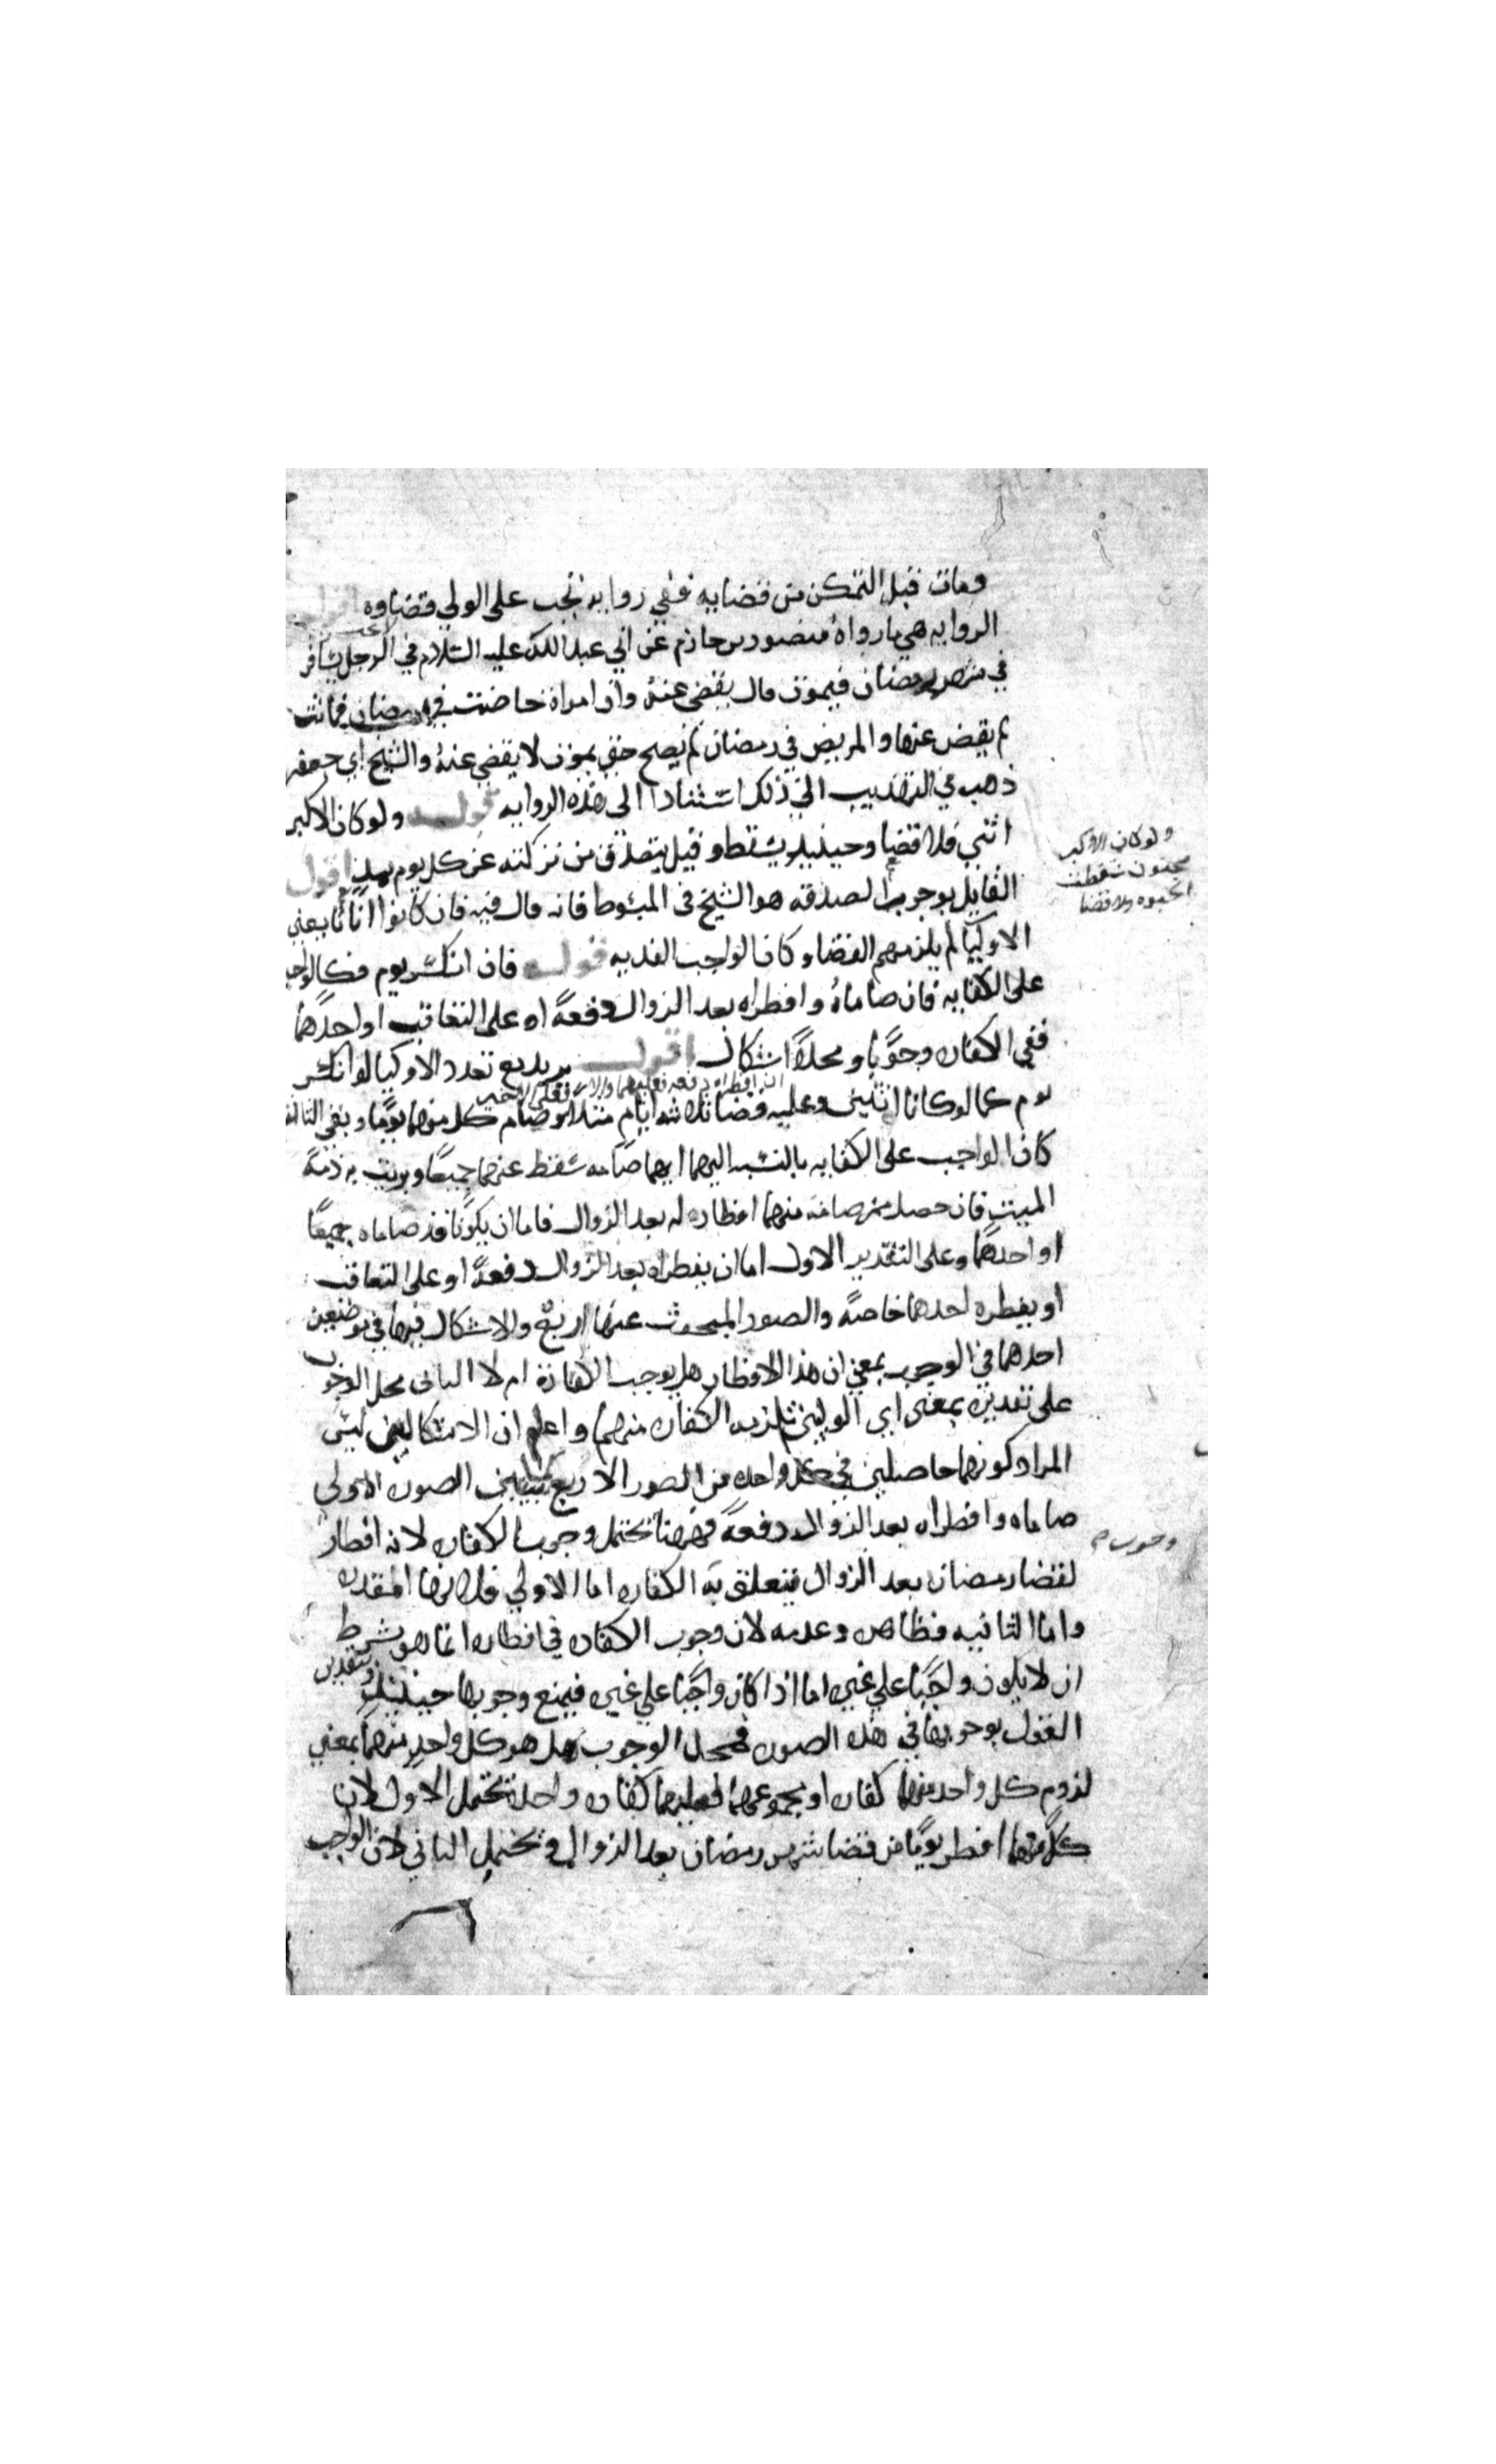 ومات قبل التمكن من قضايه ففي روايه تجب على الولي قضاوه اقول
الروايه هي ما رواه منصور بن حازم عن ابي عبد الله عليه السلام في الرجل يسافر
في شهر رمضان فيموت قال يقضي عنه وان امراة حاضت في رمضان فماتت
لم يقض عنها والمريض في رمضان لم يصح حتى يموت لا يقضي عنه والشيخ ابي جعفر
ذهب في التهذيب الي ذلك استنادا الى هذه الروايه قوله ولو كان الاكبر
انثي فلا قضا وحينيذ يسقط وقيل يتصدق من تركته عن كل يوم بمد اقول
القايل بوجوب الصدقه هو الشيخ في المبسوط فانه قال فيه فان كانوا اناثا يعني
الاوليا لم يلزمهم القضا وكان الواجب الفديه قوله فان انكسر يوم فكالواجب
على الكفايه فان صاماه وافطراه بعد الزوال دفعة او على التعاقب او احدهما
ففي الكفاره وجوبا ومحلا اشكال اقول يريد مع تعدد الاوليا لو انكسر
ان افطراه دفعه فعليهما والا فعلى الاخير
يوم كما لو كانا اثنين وعليه قضا ثلاثه ايام مثلا وصام كل منهما يوما وبقي الثالث
كان الواجب على الكفايه بالنسبه اليهما ايهما صامه سقط عنهما جميعا وبريت به ذمة
الميت فان حصل ممن صامه منهما افطاره له بعد الزوال فاما ان يكونا قد صاماه جميعا
او احدهما وعلى التقدير الاول اما ان يفطراه بعد الزوال دفعة او على التعاقب
او يفطره احدهما خاصة والصور المبحوث عنها اربع والاشكال فيها في موضعين
احدهما في الوجوب بمعني ان هذا الافطار هل يوجب الكفارة ام لا الثاني محل الوجوب
على تقديره بمعنى اي الوليين تلزمه الكفاره منهما واعلم ان الاشكالين ليس
المراد كونهما حاصلين في كل واحده من الصور الاربع الصوره الاولي
صاماه وافطراه بعد الزوال دفعة فههنا تحتمل وجوب الكفاره لانه افطار
لقضا رمضان بعد الزوال فيتعلق به الكفاره اما الاولي فلانها المقدره
واما الثانيه فظاهره وعدمه لان وجوب الكفاره في افطاره انما هو بشرط
ان لا يكون واجبا علي غيره اما اذا كان واجبا علي غيره فيمنع وجوبها حينيذ وبتقدير
القول بوجوبها في هذه الصوره فمحل الوجوب هل هو كل واحد منهما بمعني
لزوم كل واحد منهما كفاره او مجموعهما فعليهما كفاره واحدة تحتمل الاول لان
كلا منهما افطر يوما من قضا شهر رمضان بعد الزوال وتحتمل الثاني لان الواجب
ولو كان الاكبر
مجنون سقطت
الحبوه ولا قضا
وجوب م